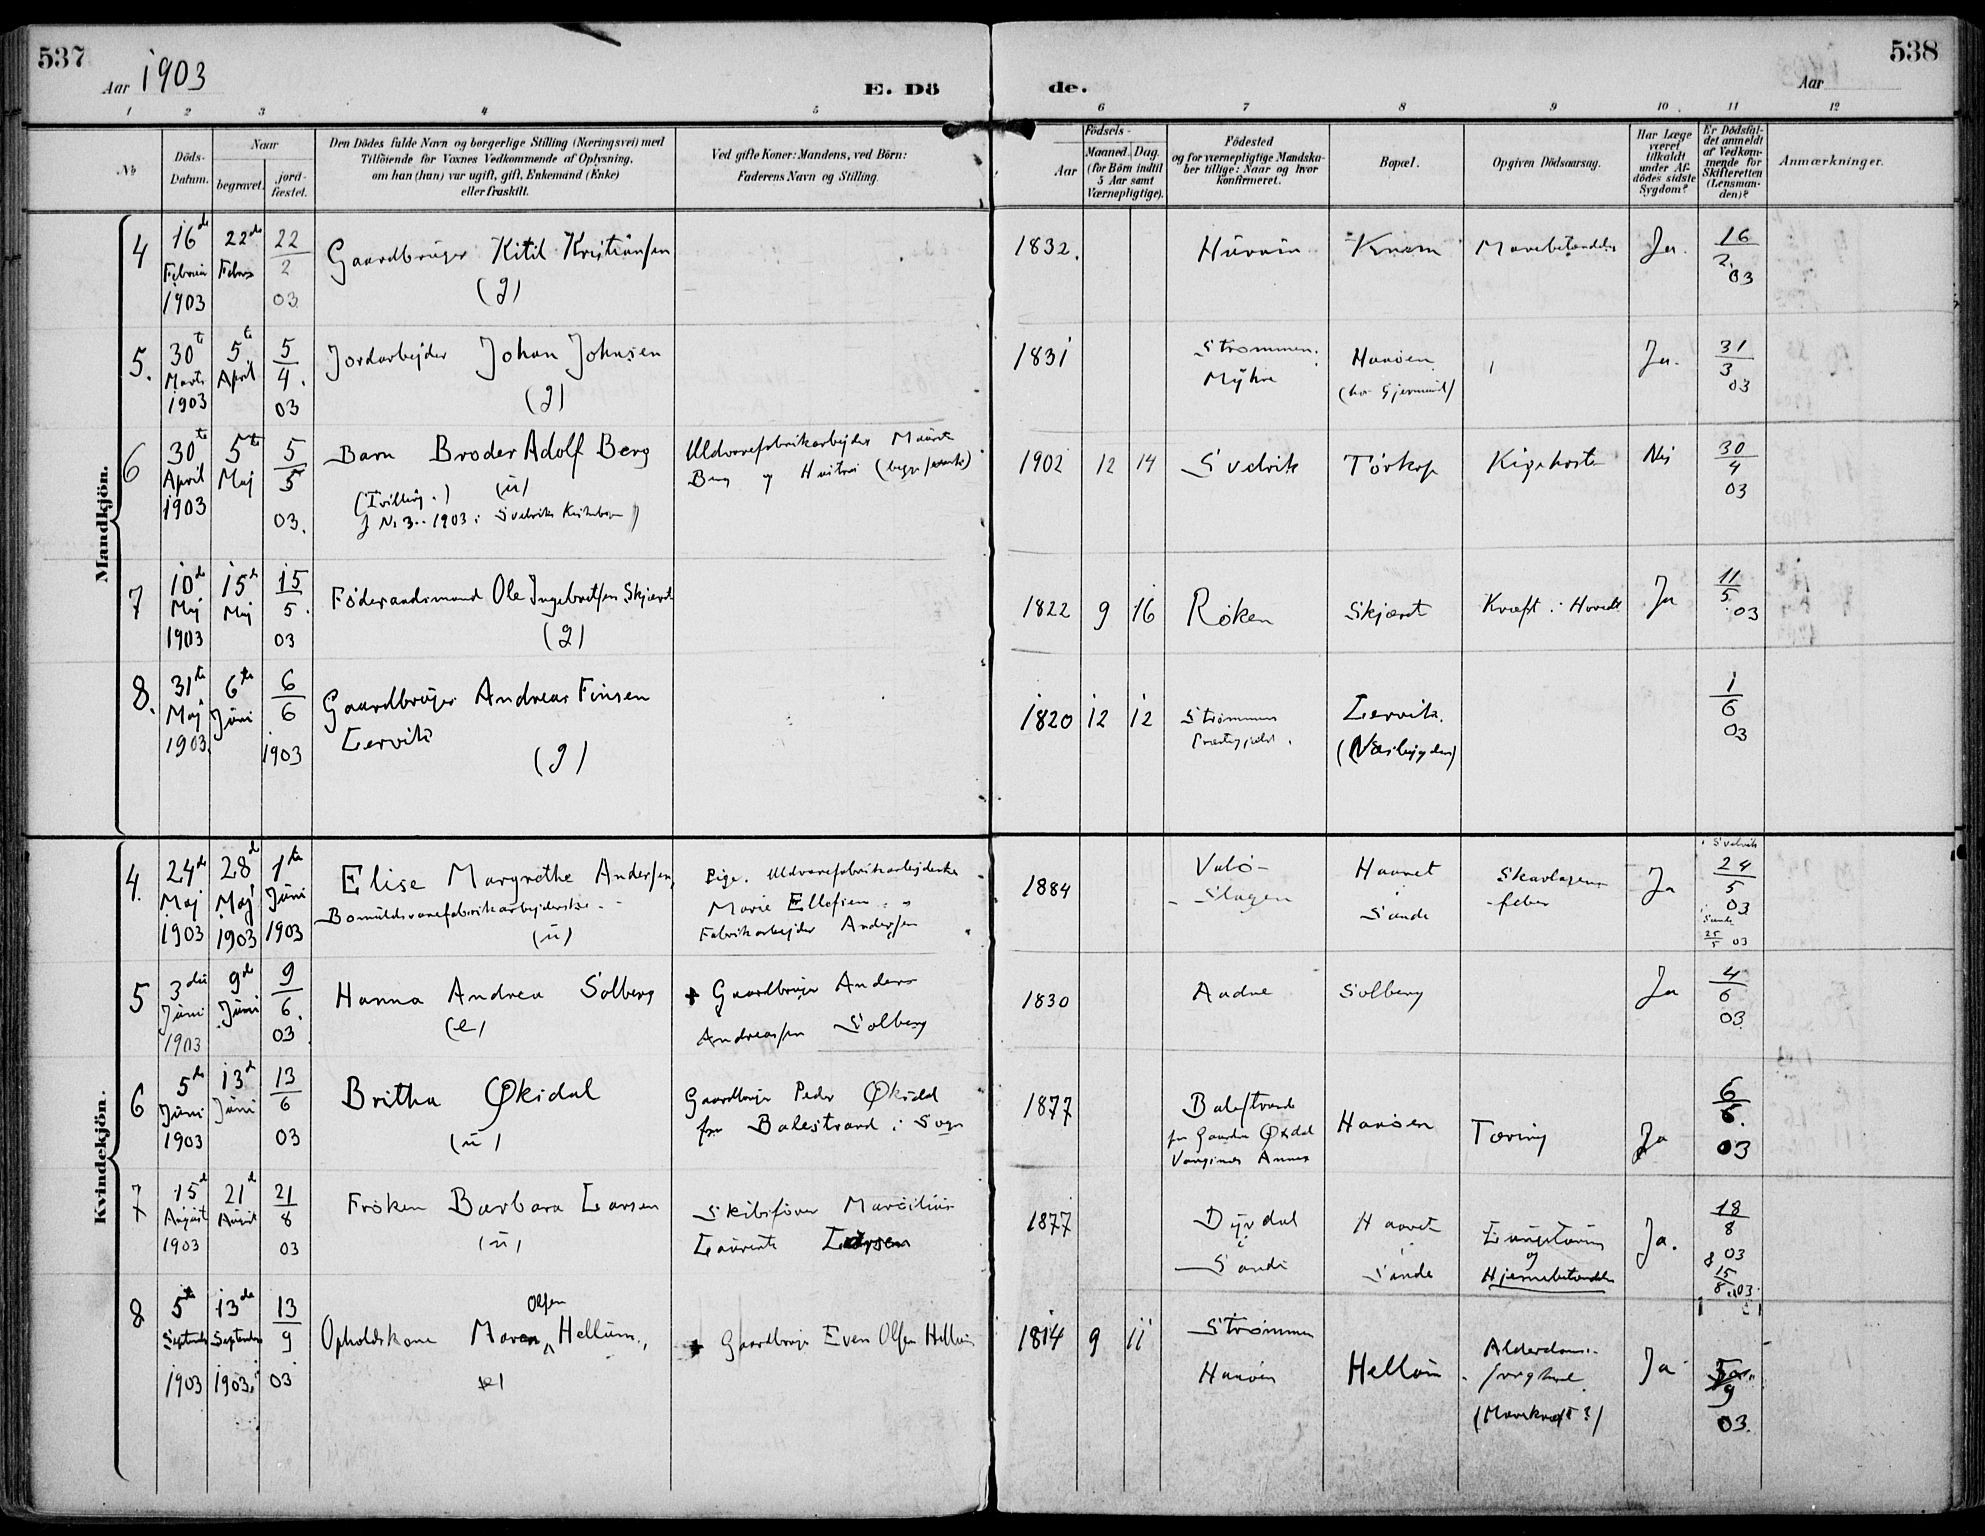 537
Aar 1903
E. Dö
de.
Aar
538
1 2 3 4 5 6 7 8 9 10 11 12
No
Döds-
Datum.
Naar
begravet.
jord-
fæstet.
Den Dödes fulde Navn og borgerlige Stilling (Næringsvei) med
Tilföiende for Voxnes Vedkommende af Oplysning,
om han (hun) var ugift, gift, Enkemand (Enke)
eller fraskilt.
Ved gifte Koner: Mandens, ved Börn:
Faderens Navn og Stilling.
Födsels-
Aar
Maaned. Dag.
(for Börn indtil
5 Aar samt
Værnepligtige).
Födested
og for værnepligtige Mandska-
ber tillige: Naar og hvor
konfirmeret.
Bopæl.
Opgiven Dödsaarsag.
Har Læge
været
tilkaldt
under Af-
dödes sidste
Sygdom?
Er Dödsfal-
det anmeldt
af Vedkom-
mende for
Skifteretten
(Lensman-
den)?
Anmærkninger.
Mandkjön.
4
16de
1903
22de
22
2
03
Gaardbruger Kitil Kristiansen
(g)
1832.
Knem
Mavebetændelse
Ja.
16
2
03
5.
30te
Marts
1903
5te
April
5
4.
03
Jordarbejder Johan Johnsen
(g)
1831
Strømmen.
Myhre
Haaøen
Ja.
31
3
03
6
30te
April
1903
5te
Maj
5
5
03.
Barn Broder Adolf Berg
(Tvilling.) (u)
Uldvarefabrikarbejder
Berg og Hustru
1902 12 14
Svelvik
Tørkop
Kighoste
Nej
30
4
03
7
10de
Maj
1903
15de
Maj
15
5.
03
Føderaadsmand Ole Ingebretsen Skjæret
(g)
1822 9 16
Røken
Skjæret
Kræft i Hovedet
Ja
11
5
03
8.
31te
Maj
1903.
6te
Juni
6
6
1903
Gaardbruger Andreas Finsen
Lervik
(g)
1820 12 12
Strømmens
Præstegjeld.
Lervik.
(Næsbygden)
1
6
03
Kvindekjön.
4.
24de
Maj
1903
28de
Maj
1903
1te
Juni
1903
Elise Margrethe Andersen,
Bomuldsvarefabrikarbejderske
(u)
Pige. Uldvarefabrikarbejderske
Marie Ellefsen
Fabrikarbejder Andersen
1884
Valø-
Slagen
Haavet
Sande
Skarlagens-
feber
Ja
i Svelvik
24
5
03
i Sande
25
5 03
5
3die
Juni
1903
9de
Juni
9
6.
03
Hanna Andrea Solberg
(e)
+ Gaardbruger Anders
Andreassen Solberg
1830
Aadne
Solberg
Ja
4
6
03
6
5de
Juni
1903
13de
Juni
13
6
03
Britha Økidal
(u)
Gaardbruger Peder
fra Balestrand i Sogn
1877
Balestrand
Vangsnes Annex
Haaøen
Tæring
Ja
6
6.
03
7
15de
August
1903
21de
August
21
8
03
Frøken Barbara Larsen
(u)
Skibsfører
Laurents Larsen
1877
Dyrdal
i
Sande
Haavet
i
Sande
Lungetæring
og
Hjernebetændelse
Ja.
18
8
03
15
8 03
8
5te
September
1903
13de
September
1903.
13
9
03
Opholdskone Maren Olsen Hellum,
(e)
+ Gaardbruger Even Olsen Hellum
1814 9 11
Strømmen
Haaøen
Hellum
Alderdoms-
(Mavekræft?)
Ja
5
9
03.